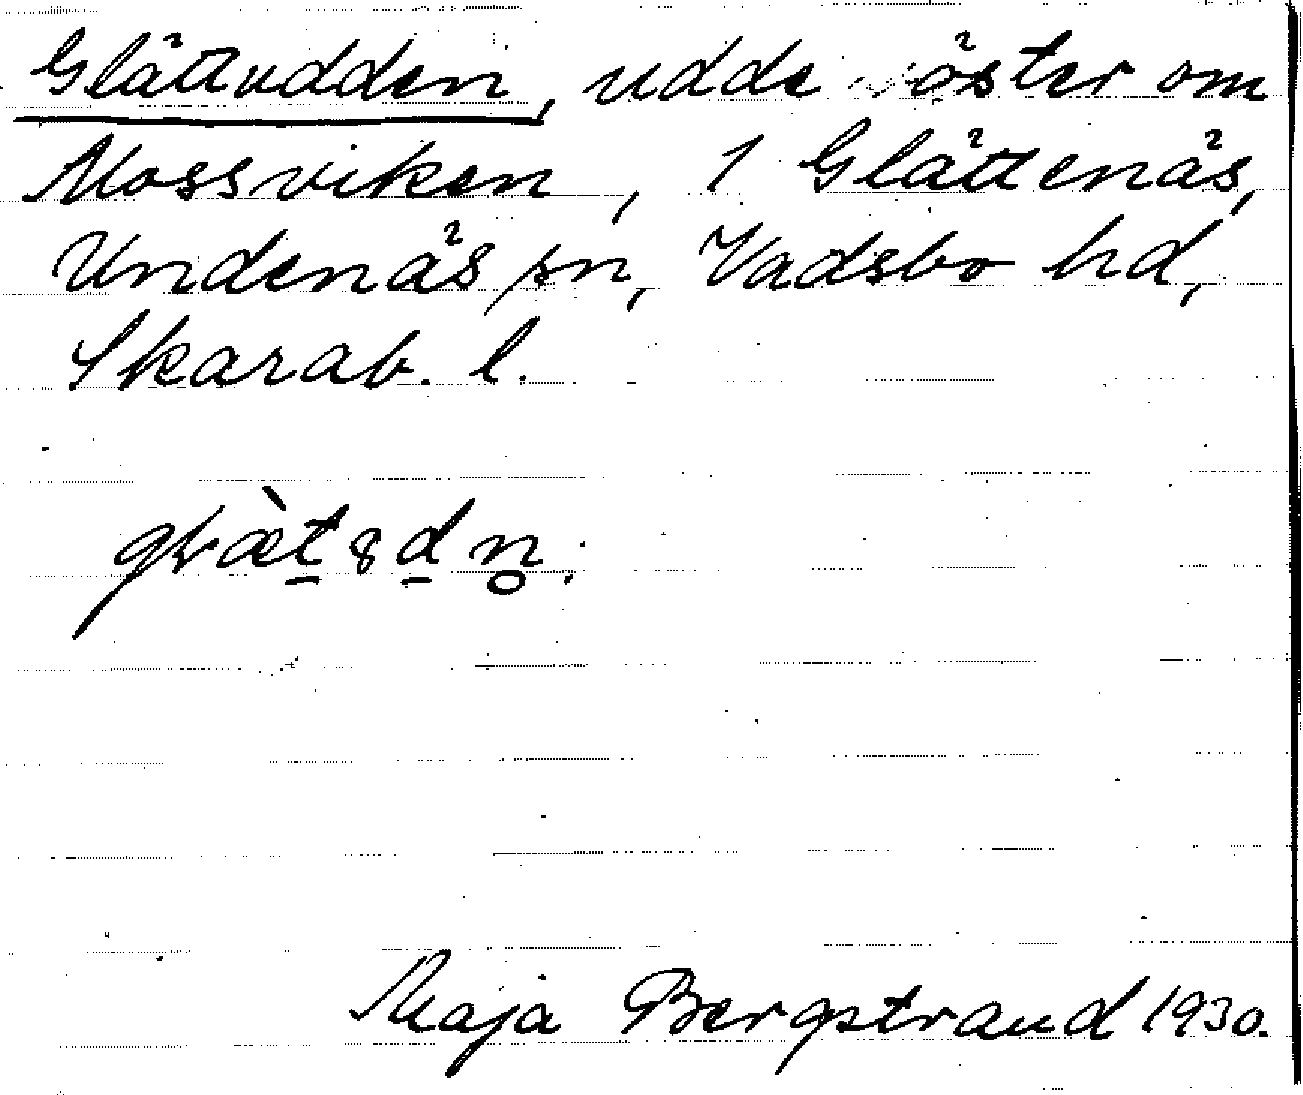 Glättudden, udde öster om
Mossviken, 1 Glättenäs,
Undenäs sn, Vadsbo hd,
Skarab. l.
Maja Bergstrand 1930.